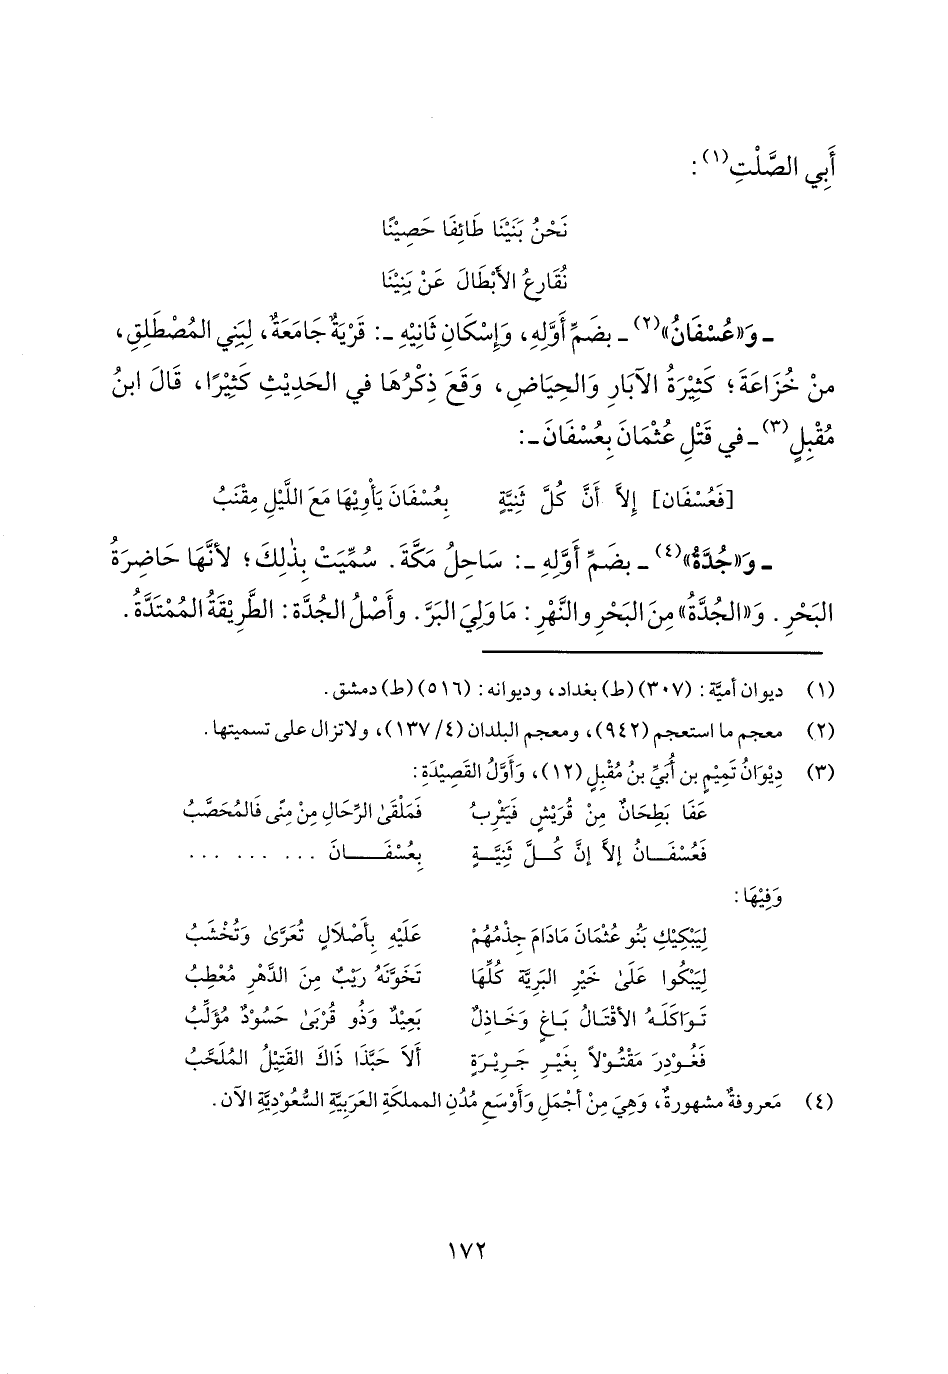 أَبِي الصَّلْتِ(١):
نَحْنُ بَنَيْنَا طَائِفَا حَصِيْنًا
نُقَارِعُ الأَبْطَالَ عَنْ بَنِيْنَا
ـ وَ«عُسْفَانُ»(٢) ـ بضَمِّ أَوَّلِهِ، وَإِسْكَانِ ثَانِيْهِ ـ: قَرْيَةٌ جَامَعَةٌ، لِبَنِي المُصْطَلِقِ،
منْ خُزَاعَةَ؛ كَثِيْرَةُ الآبَارِ وَالحِيَاضِ، وَقَعَ ذِكْرُهَا في الحَدِيْثِ كَثِيْرًا، قَالَ ابنُ
مُقْبِلٍ(٣) ـ في قَتْلِ عُثْمَانَ بِعُسْفَانَ ـ:
[فَعُسْفَان] إِلاَّ أَنَّ كُلَّ ثَنِيَّةٍ بِعُسْفَانَ يَأْوِيْهَا مَعَ اللَّيْلِ مِقْنَبُ
ـ وَ«جُدَّةُ»(٤) ـ بضَمِّ أَوَّلِهِ ـ: سَاحِلُ مَكَّةَ. سُمِّيَتْ بِذٰلِكَ؛ لأَنَّهَا حَاضِرَةُ
البَحْرِ. وَ«الجُدَّةُ» مِنَ البَحْرِ والنَّهْرِ: مَا وَلِيَ البَرَّ. وأَصْلُ الجُدَّة: الطَّرِيْقَةُ المُمْتَدَّةُ.
(١) ديوان أميَّة: (٣٠٧) (ط) بغداد، وديوانه: (٥١٦) (ط) دمشق.
(٢) معجم ما استعجم (٩٤٢)، ومعجم البلدان (٤/ ١٣٧)، ولاتزال على تسميتها.
(٣) دِيْوَانُ تَمِيْمِ بن أُبَيِّ بنُ مُقْبِلٍ (١٢)، وَأَوَّلُ القَصِيْدَةِ:
عَفَا بَطِحَانٌ مِنْ قُرَيْشٍ فَيَثْرِبُ فَمَلْقَىٰ الرِّحَالِ مِنْ مِنًى فَالمُحَصَّبُ
فَعُسْفَـانُ إلاَّ إنَّ كُـلَّ ثَنِيَّـةٍ بِعُسْفَــانَ ... ... ...
وَفِيْهَا:
لِيَبْكِيْكِ بَنُو عُثْمَانَ مَادَامَ جِذْمُهُمْ عَلَيْهِ بِأَصْلَالٍ تُعَرَّىٰ وَتُخْشَبُ
لِيَبْكُوا عَلَىٰ خَيْرِ البَرِيَّةِ كُلِّهَا تَخَوَّنَهُ رَيْبٌ مِنَ الدَّهْرِ مُعْطِبُ
تَوَاكَلَهُ الأَقْتَالُ بَاغٍ وَخَاذِلٌ بَعِيْدٌ وَذُو قُرْبَىٰ حَسُوْدٌ مُؤَلِّبُ
فَغُوْدِرَ مَقْتُوْلاً بِغَيْرِ جَرِيْرَةٍ أَلاَ حَبَّذَا ذَاكَ القَتِيْلُ المُلَحَّبُ
(٤) مَعروفةٌ مشهورةٌ، وَهِيَ مِنْ أَجْمَلِ وَأَوْسَعِ مُدُنِ المملكَةِ العَرَبِيَّةِ السُّعُوْدِيَّةِ الآن.
١٧٢